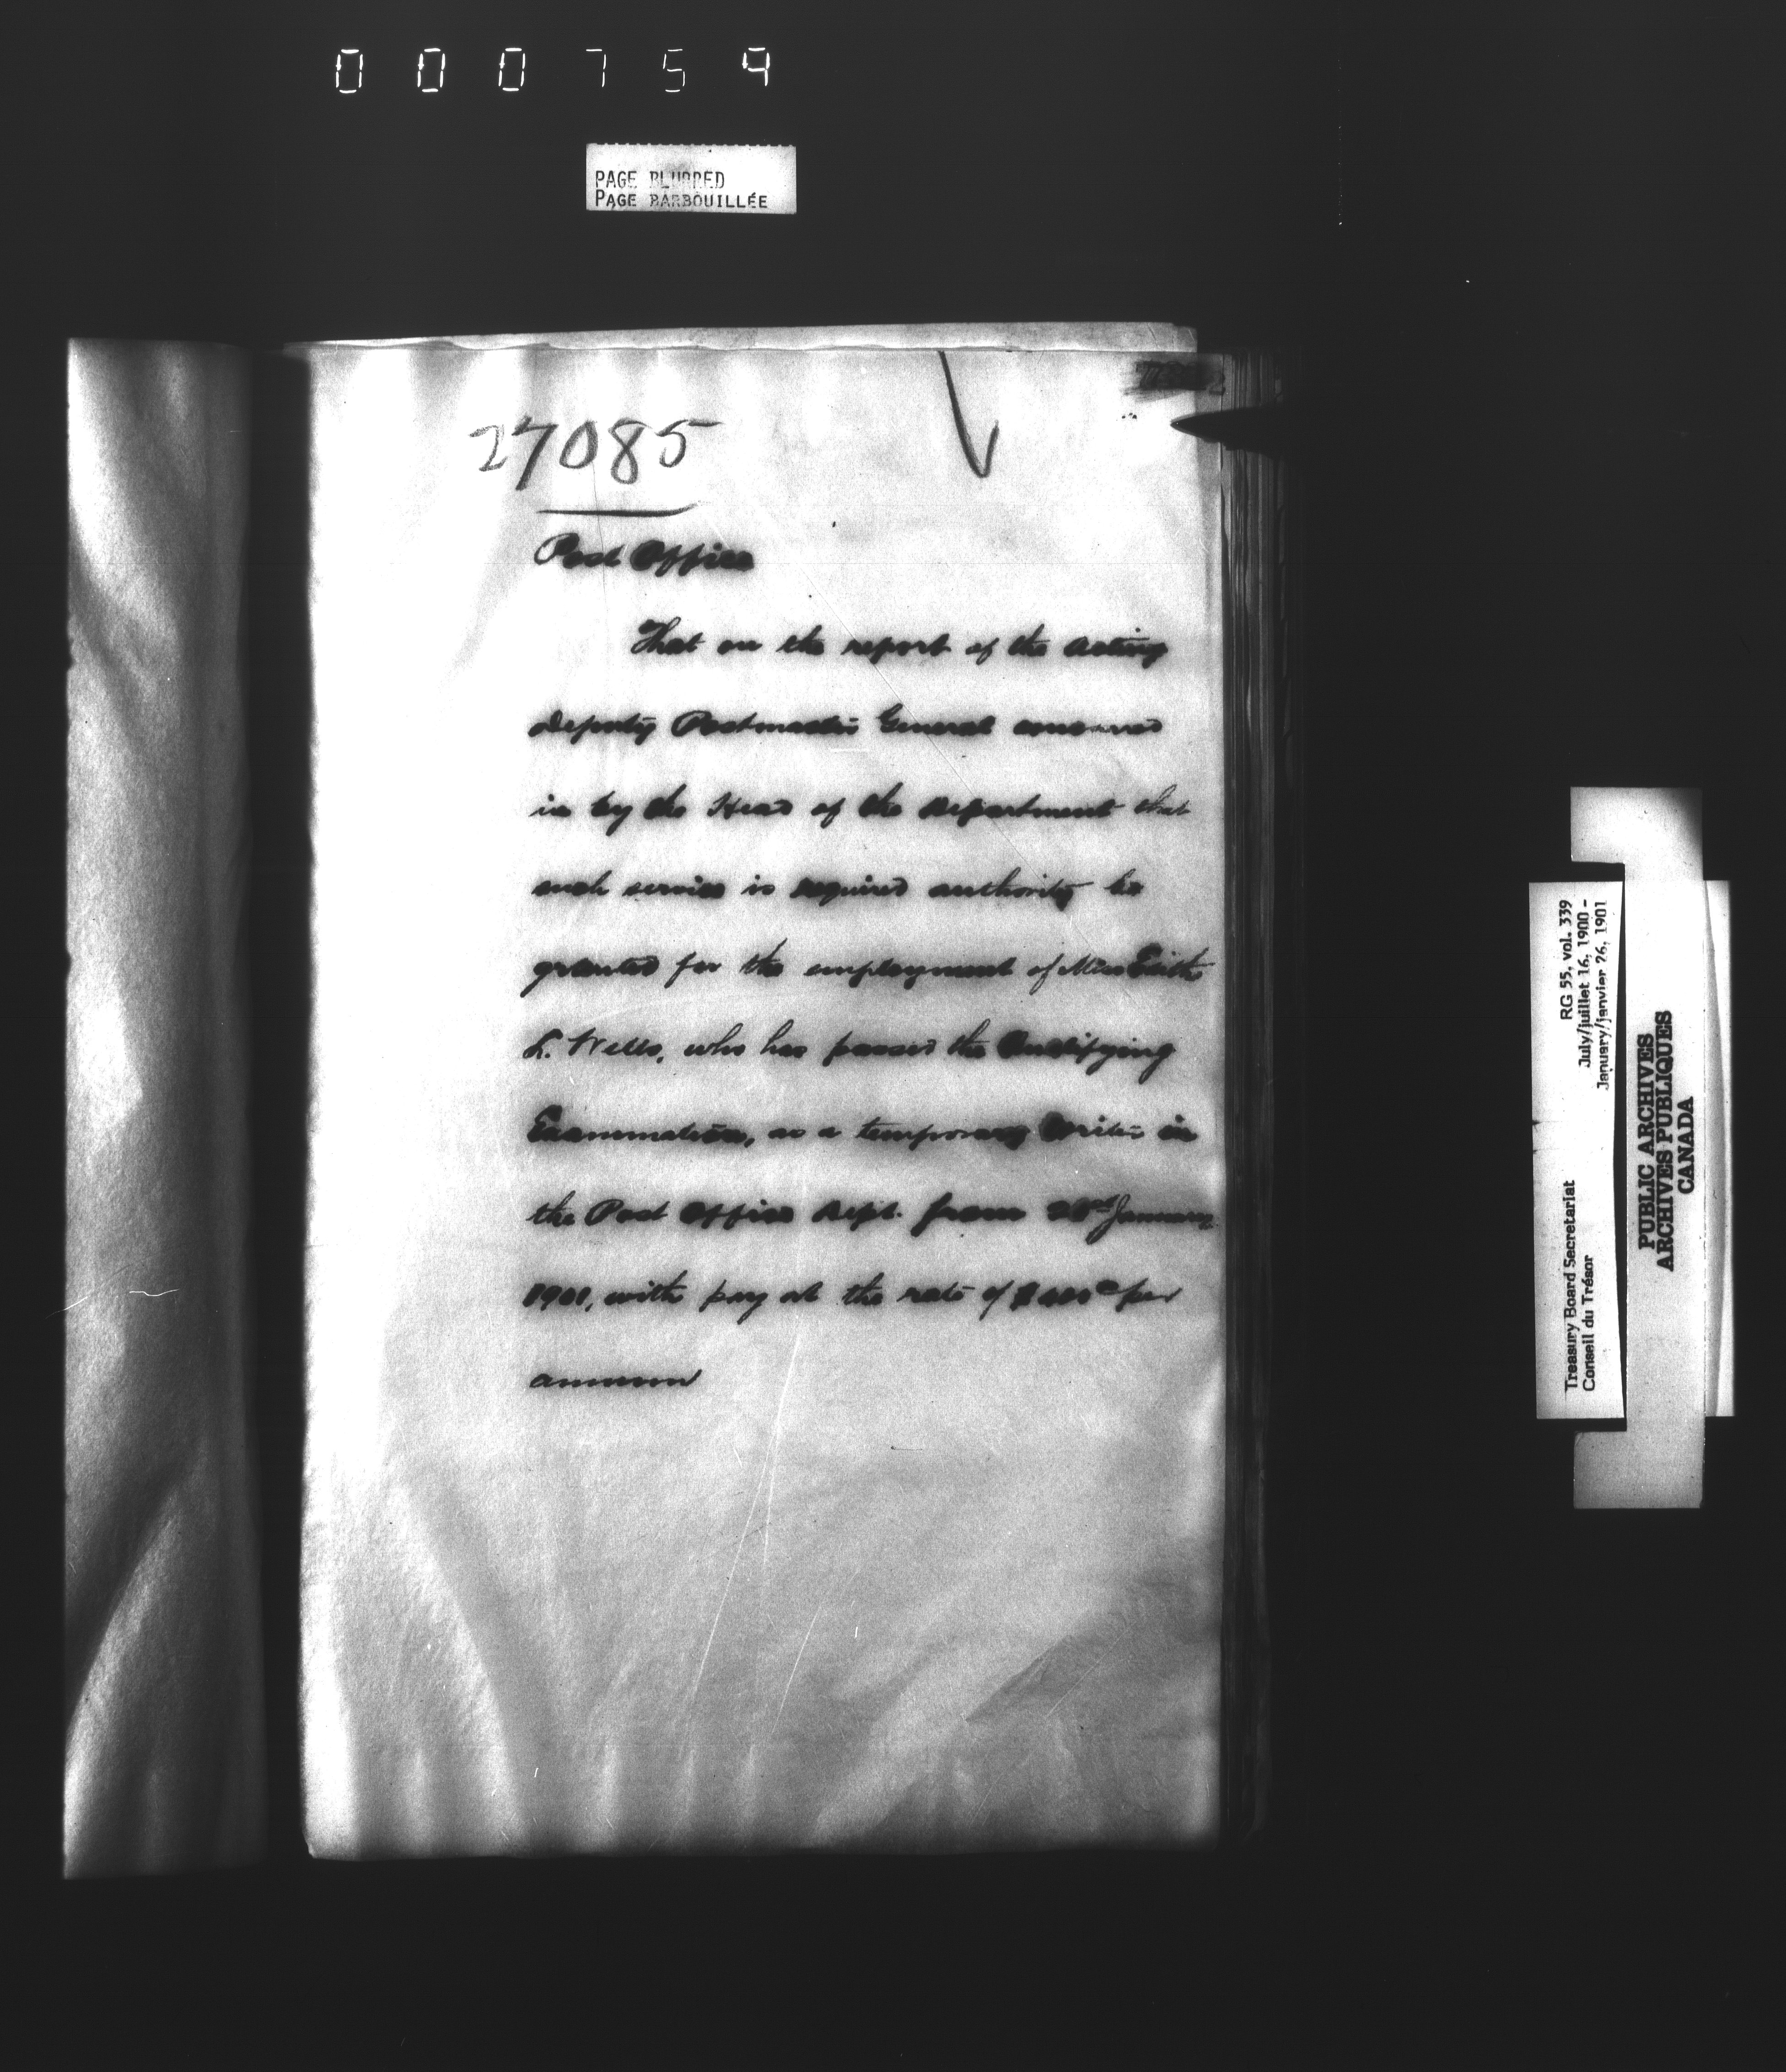 000759
PAGE BLURRED
PAGE BARBOUILLÉE
27085
Post Office
That on the report of the Acting
Deputy Postmaster General concurred
in by the Head of the Department that
such service is required authority be
granted for the employment of Miss Edith
L. Wells, who has passed the Qualifying
Examination, as a temporary Writer in
the Post Office Dept. from January
1901, with pay at the rate of $400 00 per
annum
Treasury Board Secretariat RG 55, vol. 339
Conseil du Trésor July/juillet 16, 1900 -
January/janvier 26, 1901
PUBLIC ARCHIVES
ARCHIVES PUBLIQUES
CANADA